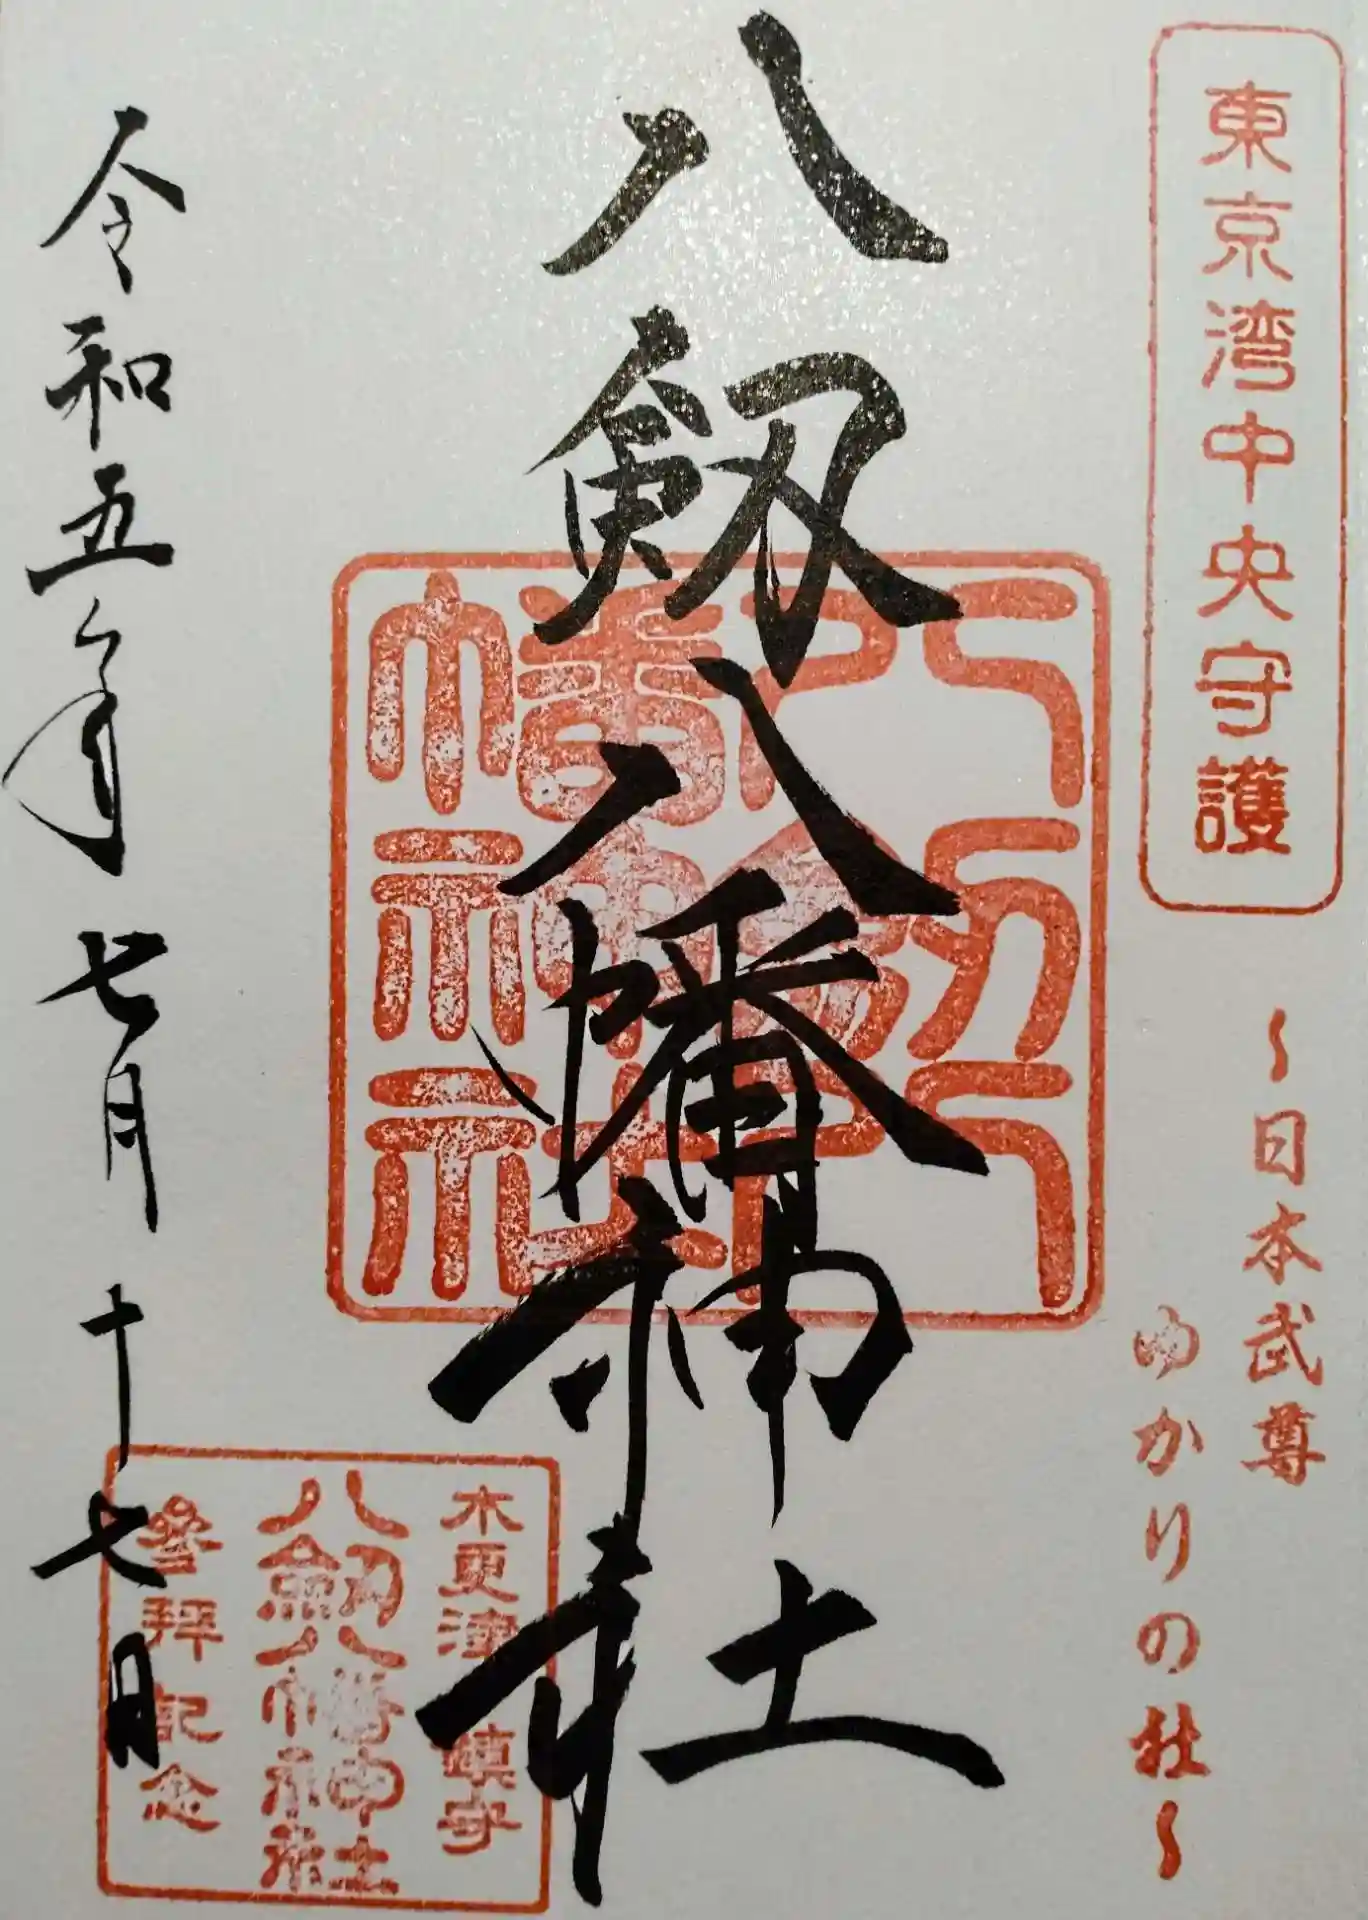 東京湾中央守護
～日本武尊
ゆかりの社～
八剱八幡神社
八剱八幡神社
木更津 鎮守
八剱八幡神社
参拝記念
令和五年七月十七日